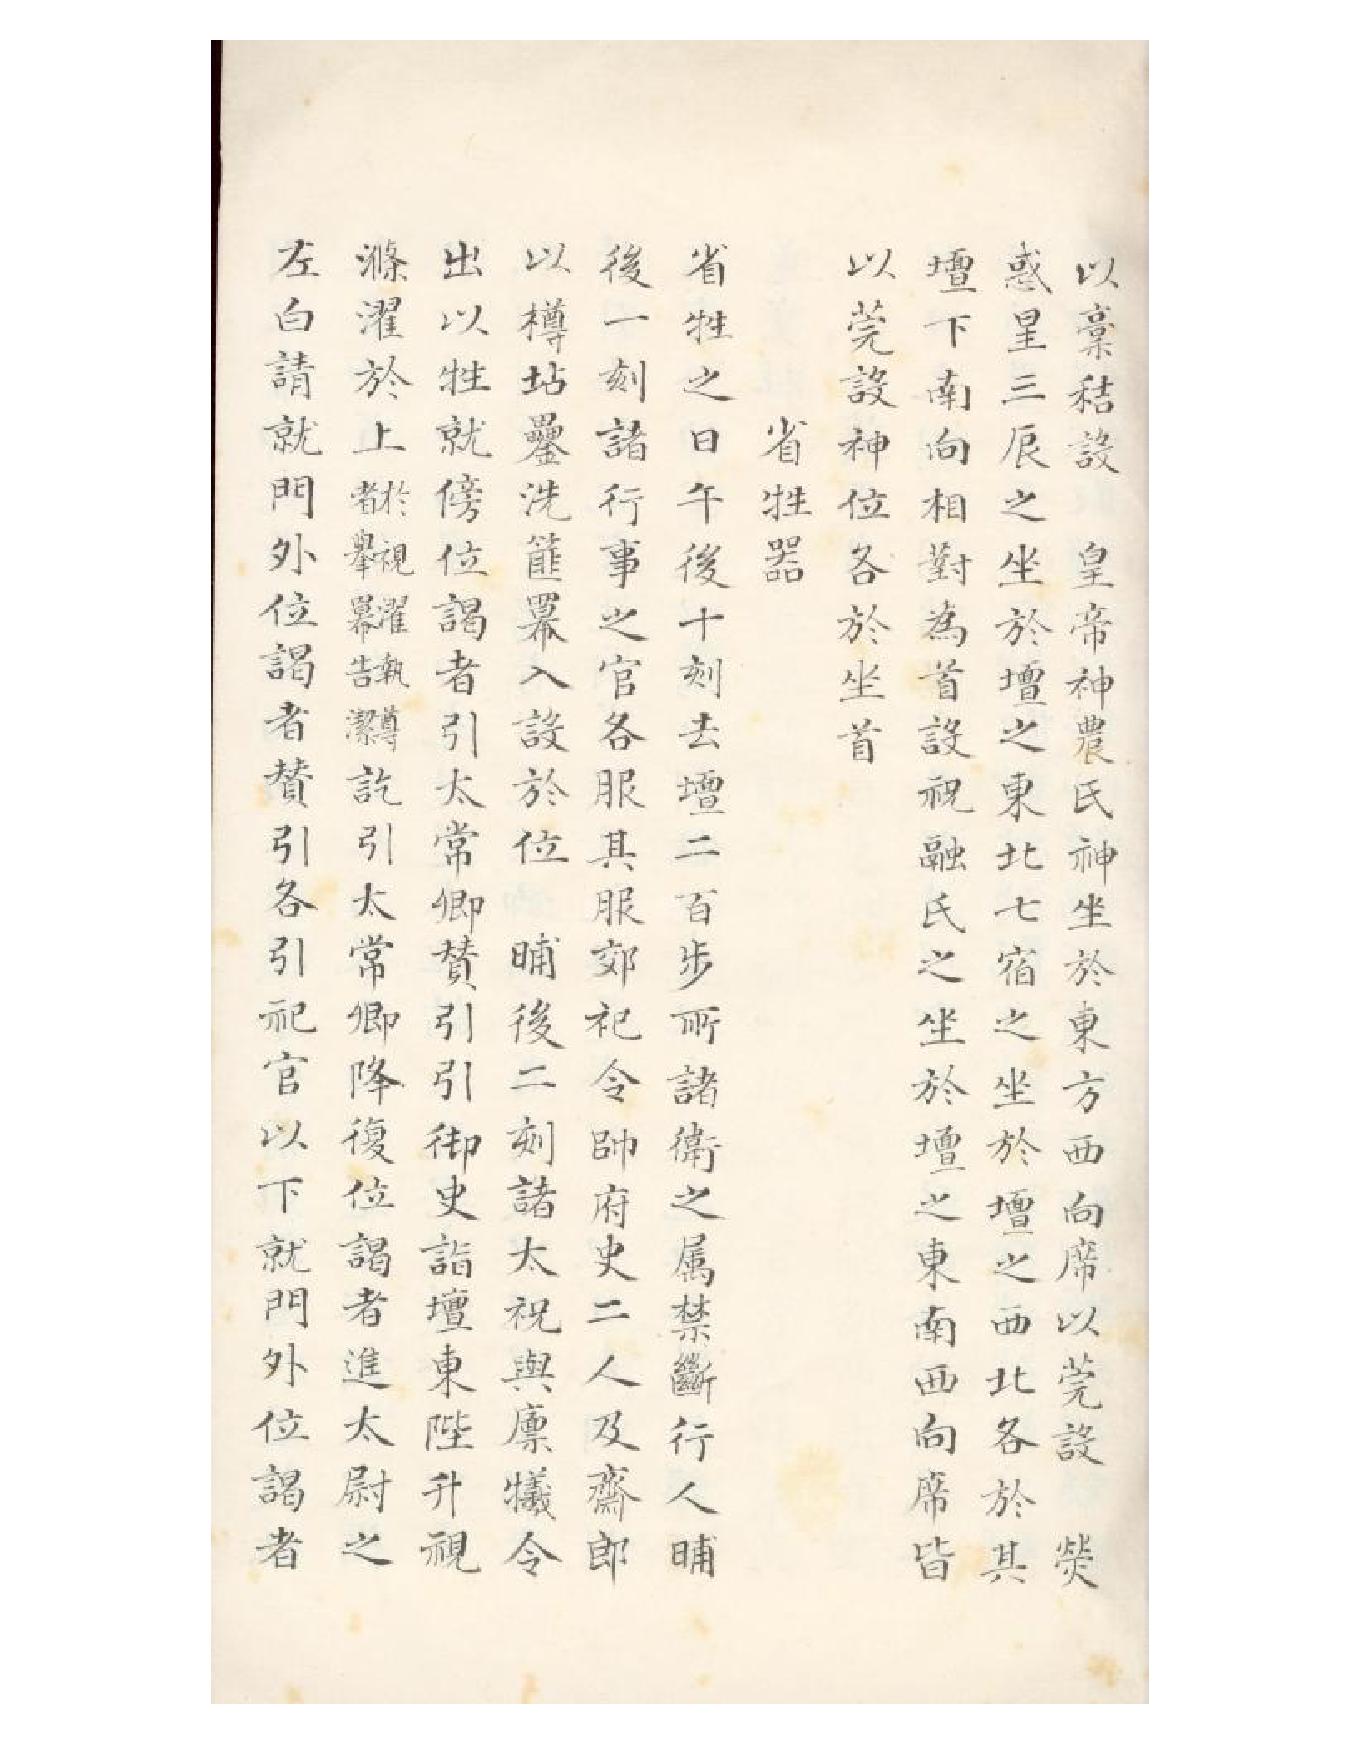 以稾秸設　皇帝神農氏神坐於東方西向席以莞設　熒
惑星三辰之坐於壇之東北七宿之坐於壇之西北各於其
壇下南向相對為首設祝融氏之坐於壇之東南西向席皆
以莞設神位各於坐首
省牲器
省牲之日午後十刻去壇二百步所諸衛之属禁斷行人晡
後一刻諸行事之官各服其服郊祀令帥府史二人及齋郎
以樽坫罍洗篚羃入設於位　晡後二刻諸太祝與廪犧令
出以牲就傍位謁者引太常卿賛引引御史詣壇東陛升視
滌濯於上於視濯執罇者舉羃告潔訖引太常卿降復位謁者進太尉之
左白請就門外位謁者賛引各引祀官以下就門外位謁者